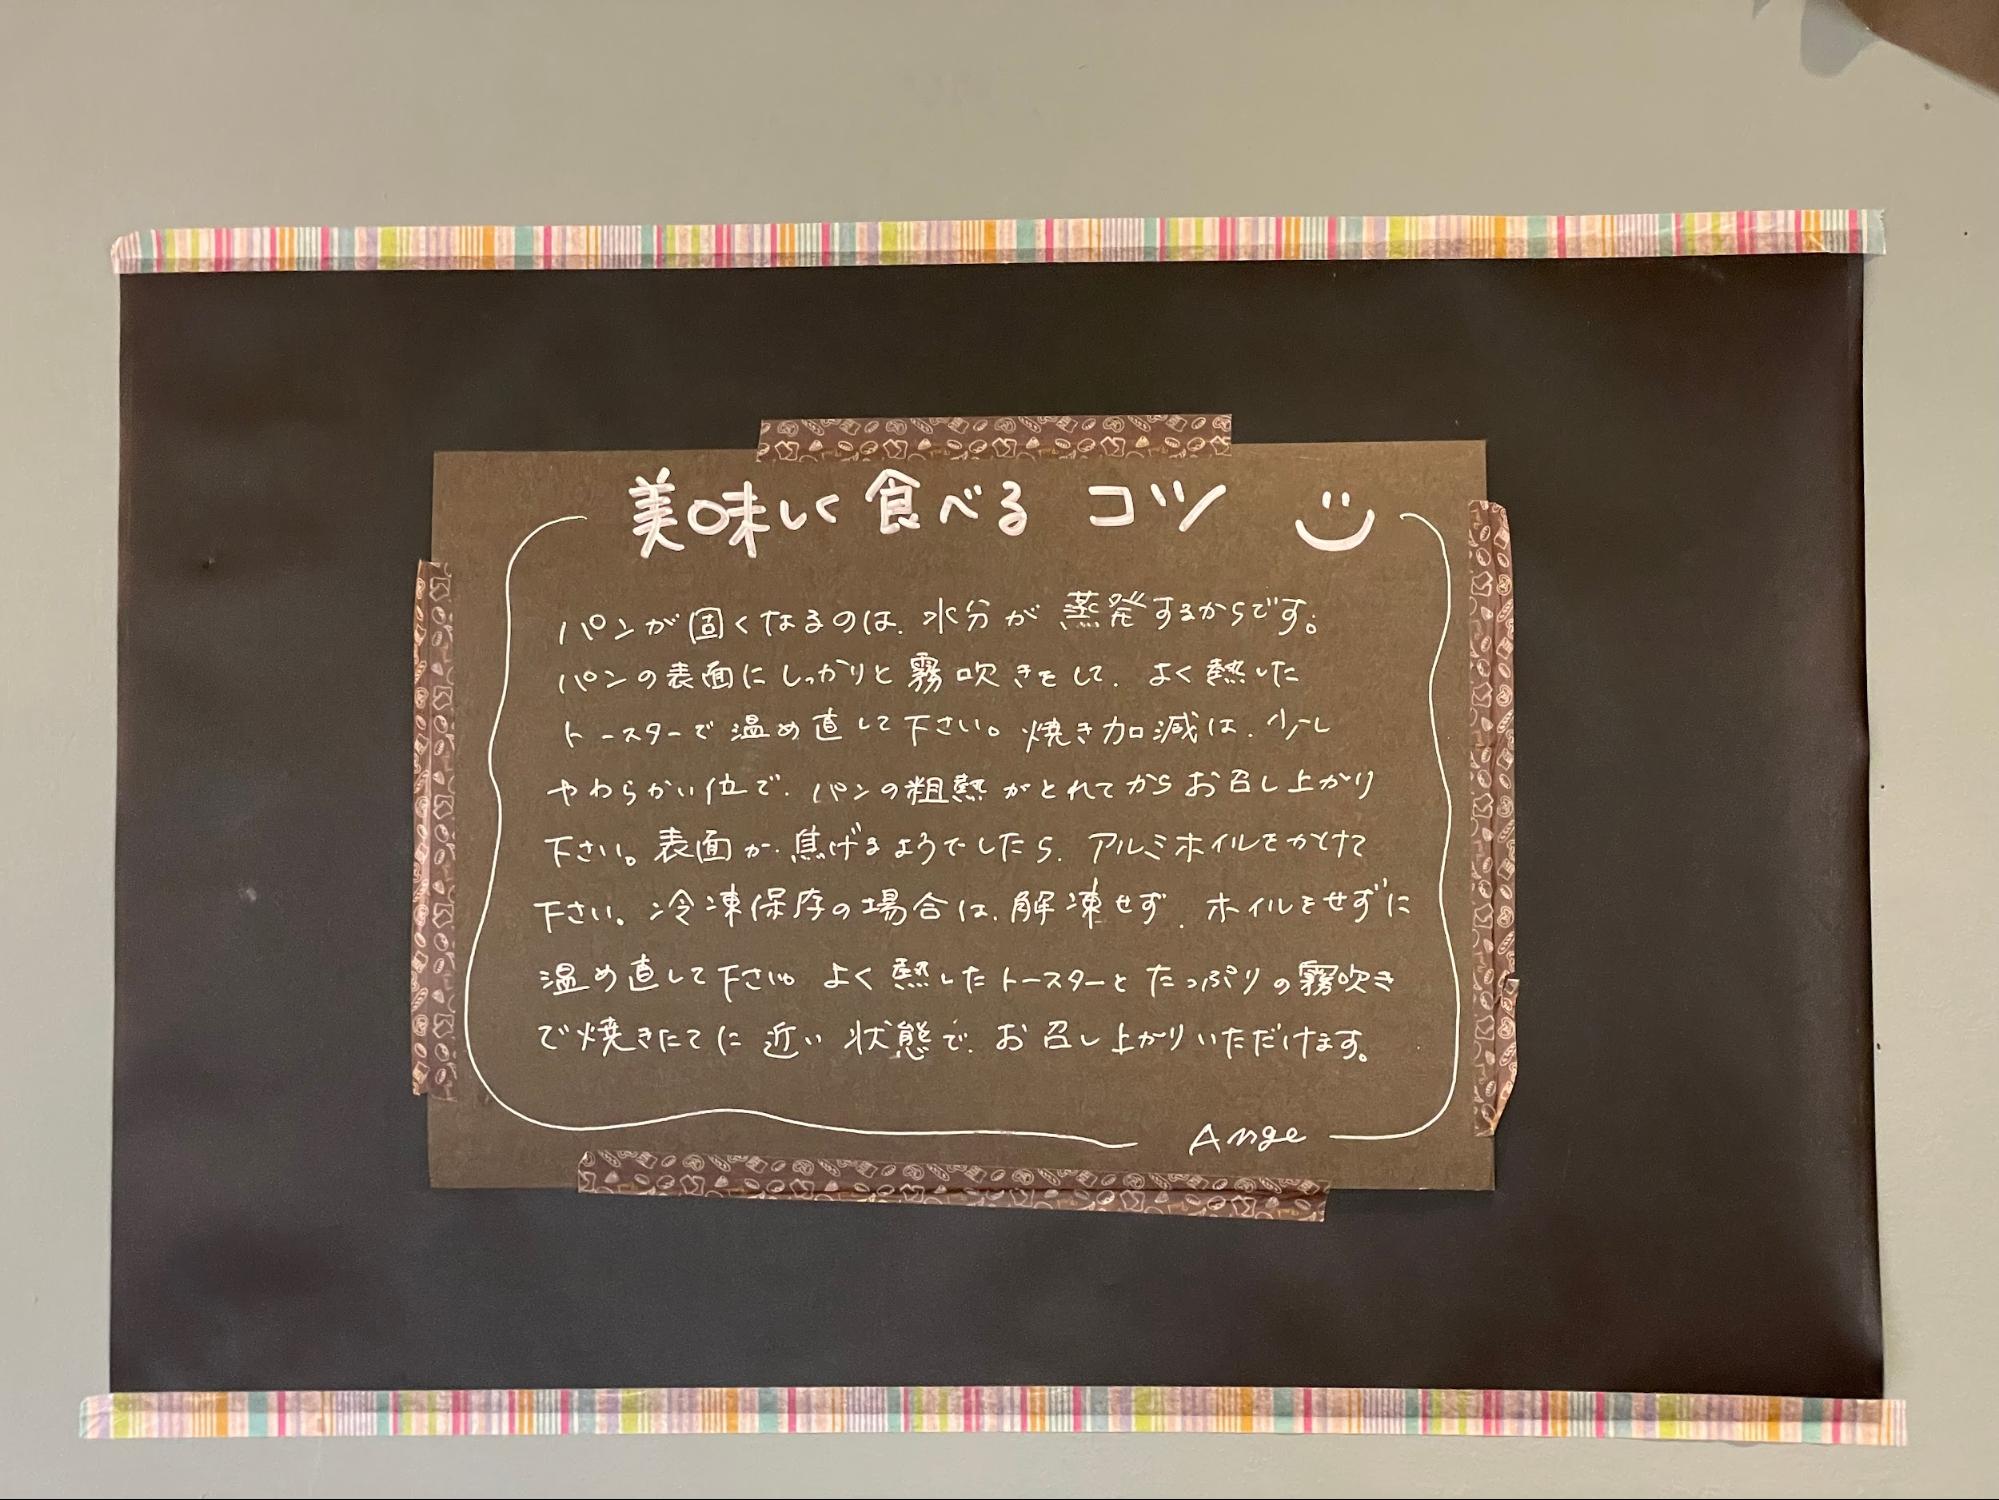 美味しく食べる コツ
パンが固くなるのは、水分が蒸発するからです。
パンの表面にしっかりと霧吹きをして、よく熱した
トースターで温め直して下さい。焼き加減は、少し
やわらかい位で、パンの粗熱がとれてからお召し上がり
下さい。表面が焦げるようでしたら、アルミホイルをかけて
下さい。冷凍保存の場合は、解凍せず、ホイルをせずに
温め直して下さい。よく熱したトースターとたっぷりの霧吹き
で焼きたてに近い状態で、お召し上がりいただけます。
Ange